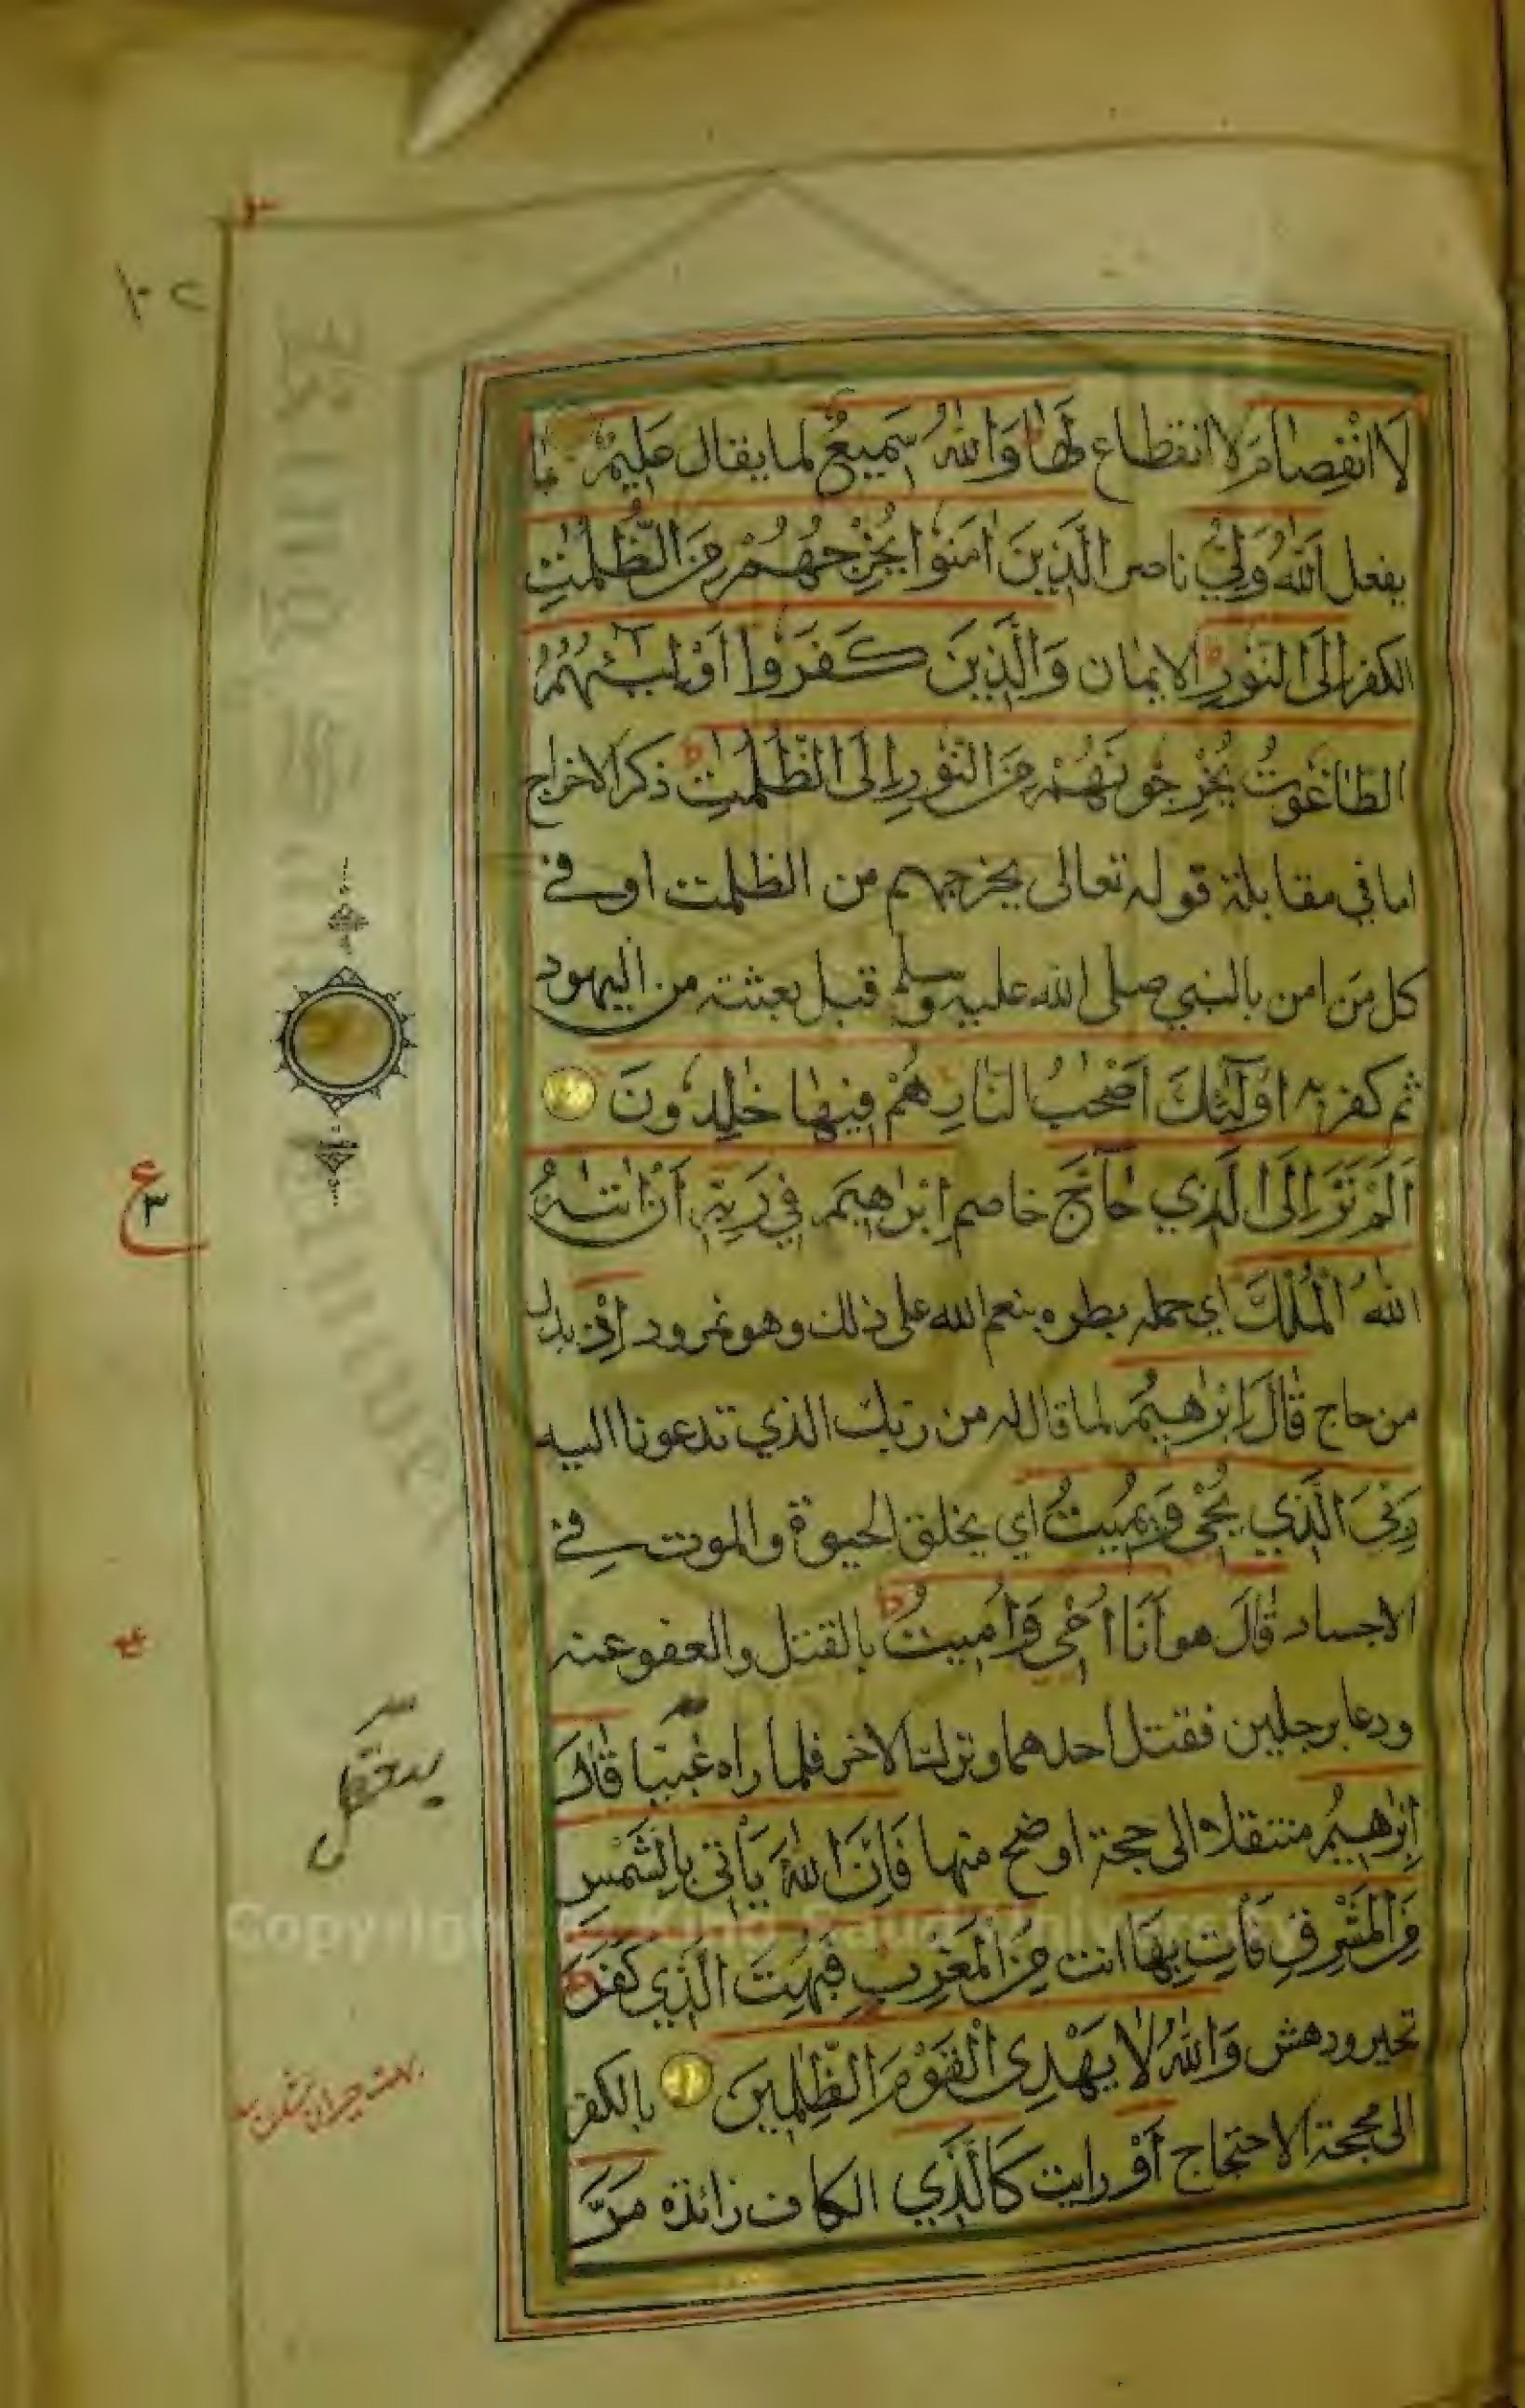 لَا انْفِصَامَ لا انقطاع لَهَا وَاللّٰهُ سَمِيعٌ لما يقال عَلِيمٌ بما
يفعل اَللّٰهُ وَلِيُّ ناصر الَّذِينَ اٰمَنُوا يُخْرِجُهُمْ مِنَ الظُّلُمٰتِ
الكفر اِلَى النُّورِ الايمان وَالَّذِينَ كَفَرُوا اَوْلِيٰٓئُهُمُ
الطَّاغُوتُ يُخْرِجُونَهُمْ مِنَ النُّورِ اِلَى الظُّلُمٰتِ ذكر الاخراج
اما في مقابلة قوله تعالى يخرجهم من الظلمت او في
كل من امن بالنبي صلى الله عليه وسلم قبل بعثته من اليهود
ثم كفر به اُولٰٓئِكَ اَصْحٰبُ النَّارِ هُمْ فِيهَا خٰلِدُونَ
اَلَمْ تَرَ اِلَى الَّذِي حَآجَّ خاصم اِبْرٰهِيمَ فِي رَبِّهٖ اَنْ اٰتٰىهُ
اللّٰهُ الْمُلْكَ اي حمله بطره بنعم الله على ذلك وهو نمرود اِذْ بدل
من حاج قَالَ اِبْرٰهِيمُ لما قال له من ربك الذي تدعونا اليه
رَبِّيَ الَّذِي يُحْيٖ وَيُمِيتُ اي يخلق الحيوة والموت في
الاجساد قَالَ هو اَنَا اُحْيٖ وَاُمِيتُ بالقتل والعفو عنه
ودعا برجلين فقتل احدهما وترك الاخر فلما راه غبيا قَالَ
اِبْرٰهِيمُ منتقلا الى حجة اوضح منها فَاِنَّ اللّٰهَ يَأْتِي بِالشَّمْسِ
مِنَ الْمَشْرِقِ فَأْتِ بِهَا انت مِنَ الْمَغْرِبِ فَبُهِتَ الَّذِي كَفَرَ
تحير ودهش وَاللّٰهُ لَا يَهْدِي الْقَوْمَ الظّٰلِمِينَ بالكفر
الى محجة الاحتجاج اَوْ رايت كَالَّذِي الكاف زائدة مَرَّ
١٠٢
ع
٣
Copyright © King Saud University